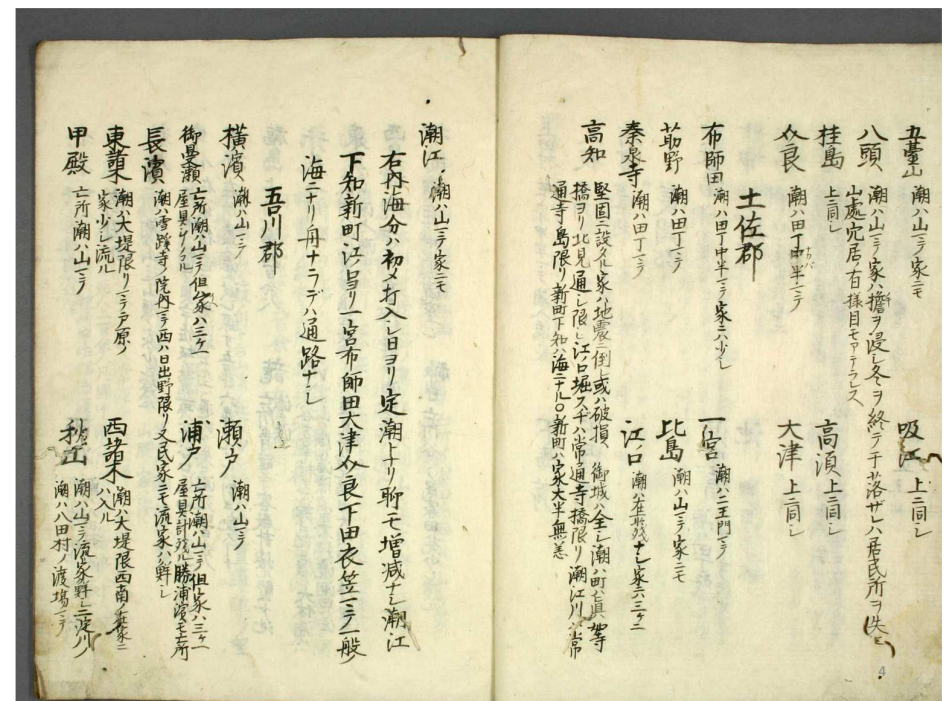 五臺山 潮ハ山マテ家ニモ
吸江 上ニ同シ
八頭 潮ハ山マテ家ハ擔ヲ浸シ冬ヲ終テ干落ザレハ居民所ヲ失ヒ
山處穴居ノ有様目モアテラレス
桂島 上ニ同シ
高須 上ニ同シ
介良 潮ハ田丁中半マテ
大津 上ニ同シ
土佐郡
布師田 潮ハ田丁中半マテ家ニハ少シ
一宮 潮ハ二王門マテ
茆野 潮ハ田丁マテ
比島 潮ハ山マテ家ニモ
秦泉寺 潮ハ田丁マテ
江ノ口 潮ハ在残ナシ家六三ヶ二
高知 堅固ニ設タル家ハ地震ニ倒レ或ハ破損ス 御城ハ全シ潮ハ町ハ真如寺
橋ヨリ北見通シ限レ江ノ口堀スチハ常通寺橋限リ潮江川ハ常
通寺島限リ新町下知ハ海ニナル〇新町ハ家大半無恙
潮江 潮ハ山マテ家ニモ
右内海分ハ初メ打入シ日ヨリ定潮トナリ聊モ増減ナシ潮江
下知新町江ノ口ヨリ一宮布師田大津介良下田衣笠マテ一般ノ
海ニナリ舟ナラデハ通路ナシ
吾川郡
横濱 潮ハ山マテ
瀬戸 潮ハ山マテ
御畳瀬 亡所潮ハ山マテ但家ハ三ヶ一
屋具トリツル
浦戸 亡所潮ハ山マテ但家ハ三ヶ一
屋具計残ル勝浦濱モ亡所
長濱 潮ハ雪蹊寺ノ院内マテ西ハ日出野限リ又民家ニモ流家ハ鮮シ
東諸木 潮ハ大堤限リマテ戸原ノ
家少シ流ル
西諸木 潮ハ大堤限西南ノ在家ニ
ハ入ル
甲殿 亡所潮ハ山マテ
秋山 潮ハ山マテ流家鮮シ二淀川ノ
潮ハ八田村ノ渡場マテ
4